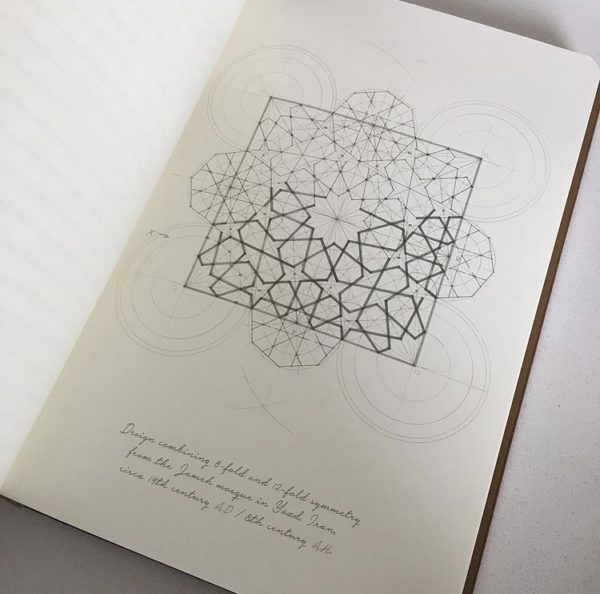 x →
Design combining 8-fold and 12-fold symmetry
from the Jameh mosque in Yazd, Iran,
circa 14th century A.D / 8th century A.H.